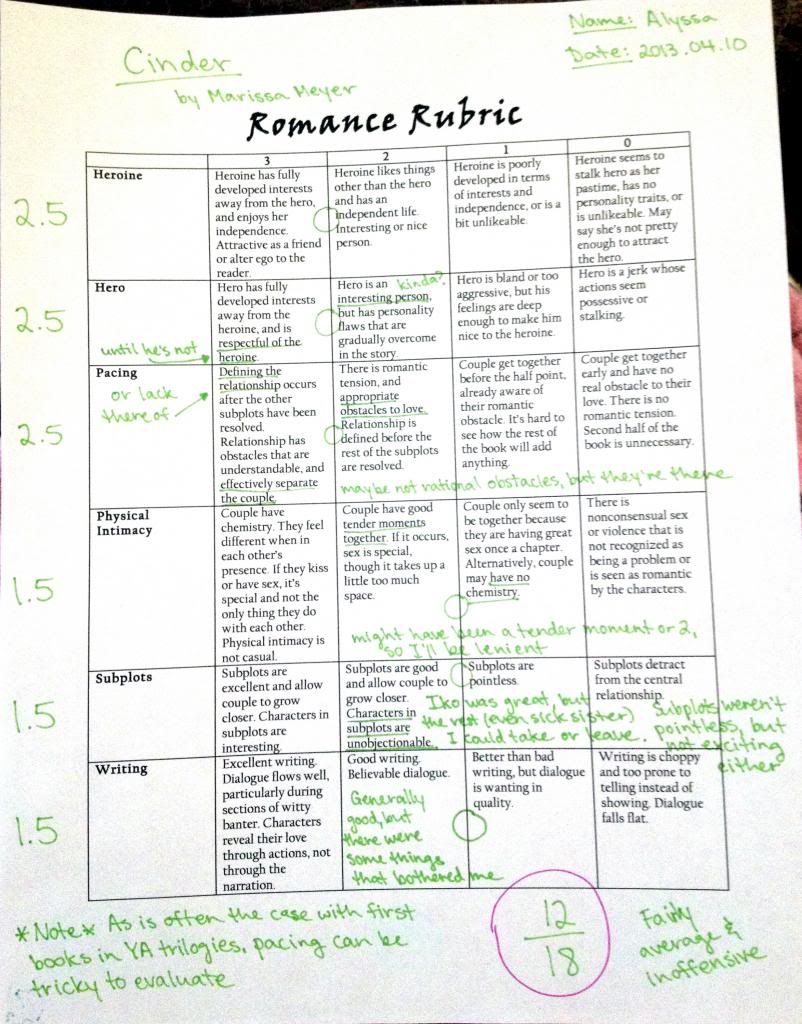 Name: Alyssa
Date: 2013.04.10
Cinder
by Marissa Meyer
Romance Rubric
3
2
1
0
2.5
Heroine
Heroine has fully
developed interests
away from the hero,
and enjoys her
independence.
Attractive as a friend
or alter ego to the
reader.
Heroine likes things
other than the hero
and has an
independent life.
Interesting or nice
person.
Heroine is poorly
developed in terms
of interests and
independence, or is a
bit unlikeable.
Heroine seems to
stalk hero as her
pastime, has no
personality traits, or
is unlikeable. May
say she's not pretty
enough to attract
the hero.
2.5
Hero
until he's not
Hero has fully
developed interests
away from the
heroine, and is
respectful of the
heroine.
Hero is an
kinda?
interesting person,
but has personality
flaws that are
gradually overcome
in the story.
Hero is bland or too
aggressive, but his
feelings are deep
enough to make him
nice to the heroine.
Hero is a jerk whose
actions seem
possessive or
stalking.
2.5
Pacing
or lack
thereof
Defining the
relationship occurs
after the other
subplots have been
resolved.
Relationship has
obstacles that are
understandable, and
effectively separate
the couple.
There is romantic
tension, and
appropriate
obstacles to love.
Relationship is
defined before the
rest of the subplots
are resolved.
Couple get together
before the half point,
already aware of
their romantic
obstacle. It's hard to
see how the rest of
the book will add
anything.
Couple get together
early and have no
real obstacle to their
love. There is no
romantic tension.
Second half of the
book is unnecessary.
maybe not rational obstacles, but they're there
1.5
Physical
Intimacy
Couple have
chemistry. They feel
different when in
each other's
presence. If they kiss
or have sex, it's
special and not the
only thing they do
with each other.
Physical intimacy is
not casual.
Couple have good
tender moments
together. If it occurs,
sex is special,
though it takes up a
little too much
space.
Couple only seem to
be together because
they are having great
sex once a chapter.
Alternatively, couple
may have no
chemistry.
There is
nonconsensual sex
or violence that is
not recognized as
being a problem or
is seen as romantic
by the characters.
might have been a tender moment or 2,
so I'll be lenient
1.5
Subplots
Subplots are
excellent and allow
couple to grow
closer. Characters in
subplots are
interesting.
Subplots are good
and allow couple to
grow closer.
Characters in
subplots are
unobjectionable.
Subplots are
pointless.
Subplots detract
from the central
relationship.
Iko was great, but
the rest (even sick sister)
I could take or leave.
Subplots weren't
pointless, but
not exciting
either
1.5
Writing
Excellent writing.
Dialogue flows well,
particularly during
sections of witty
banter. Characters
reveal their love
through actions, not
through the
narration.
Good writing.
Believable dialogue.
Generally
good, but
there were
some things
that bothered me
Better than bad
writing, but dialogue
is wanting in
quality.
Writing is choppy
and too prone to
telling instead of
showing. Dialogue
falls flat.
*Note* As is often the case with first
books in YA trilogies, pacing can be
tricky to evaluate
12
18
Fairly
average &
inoffensive